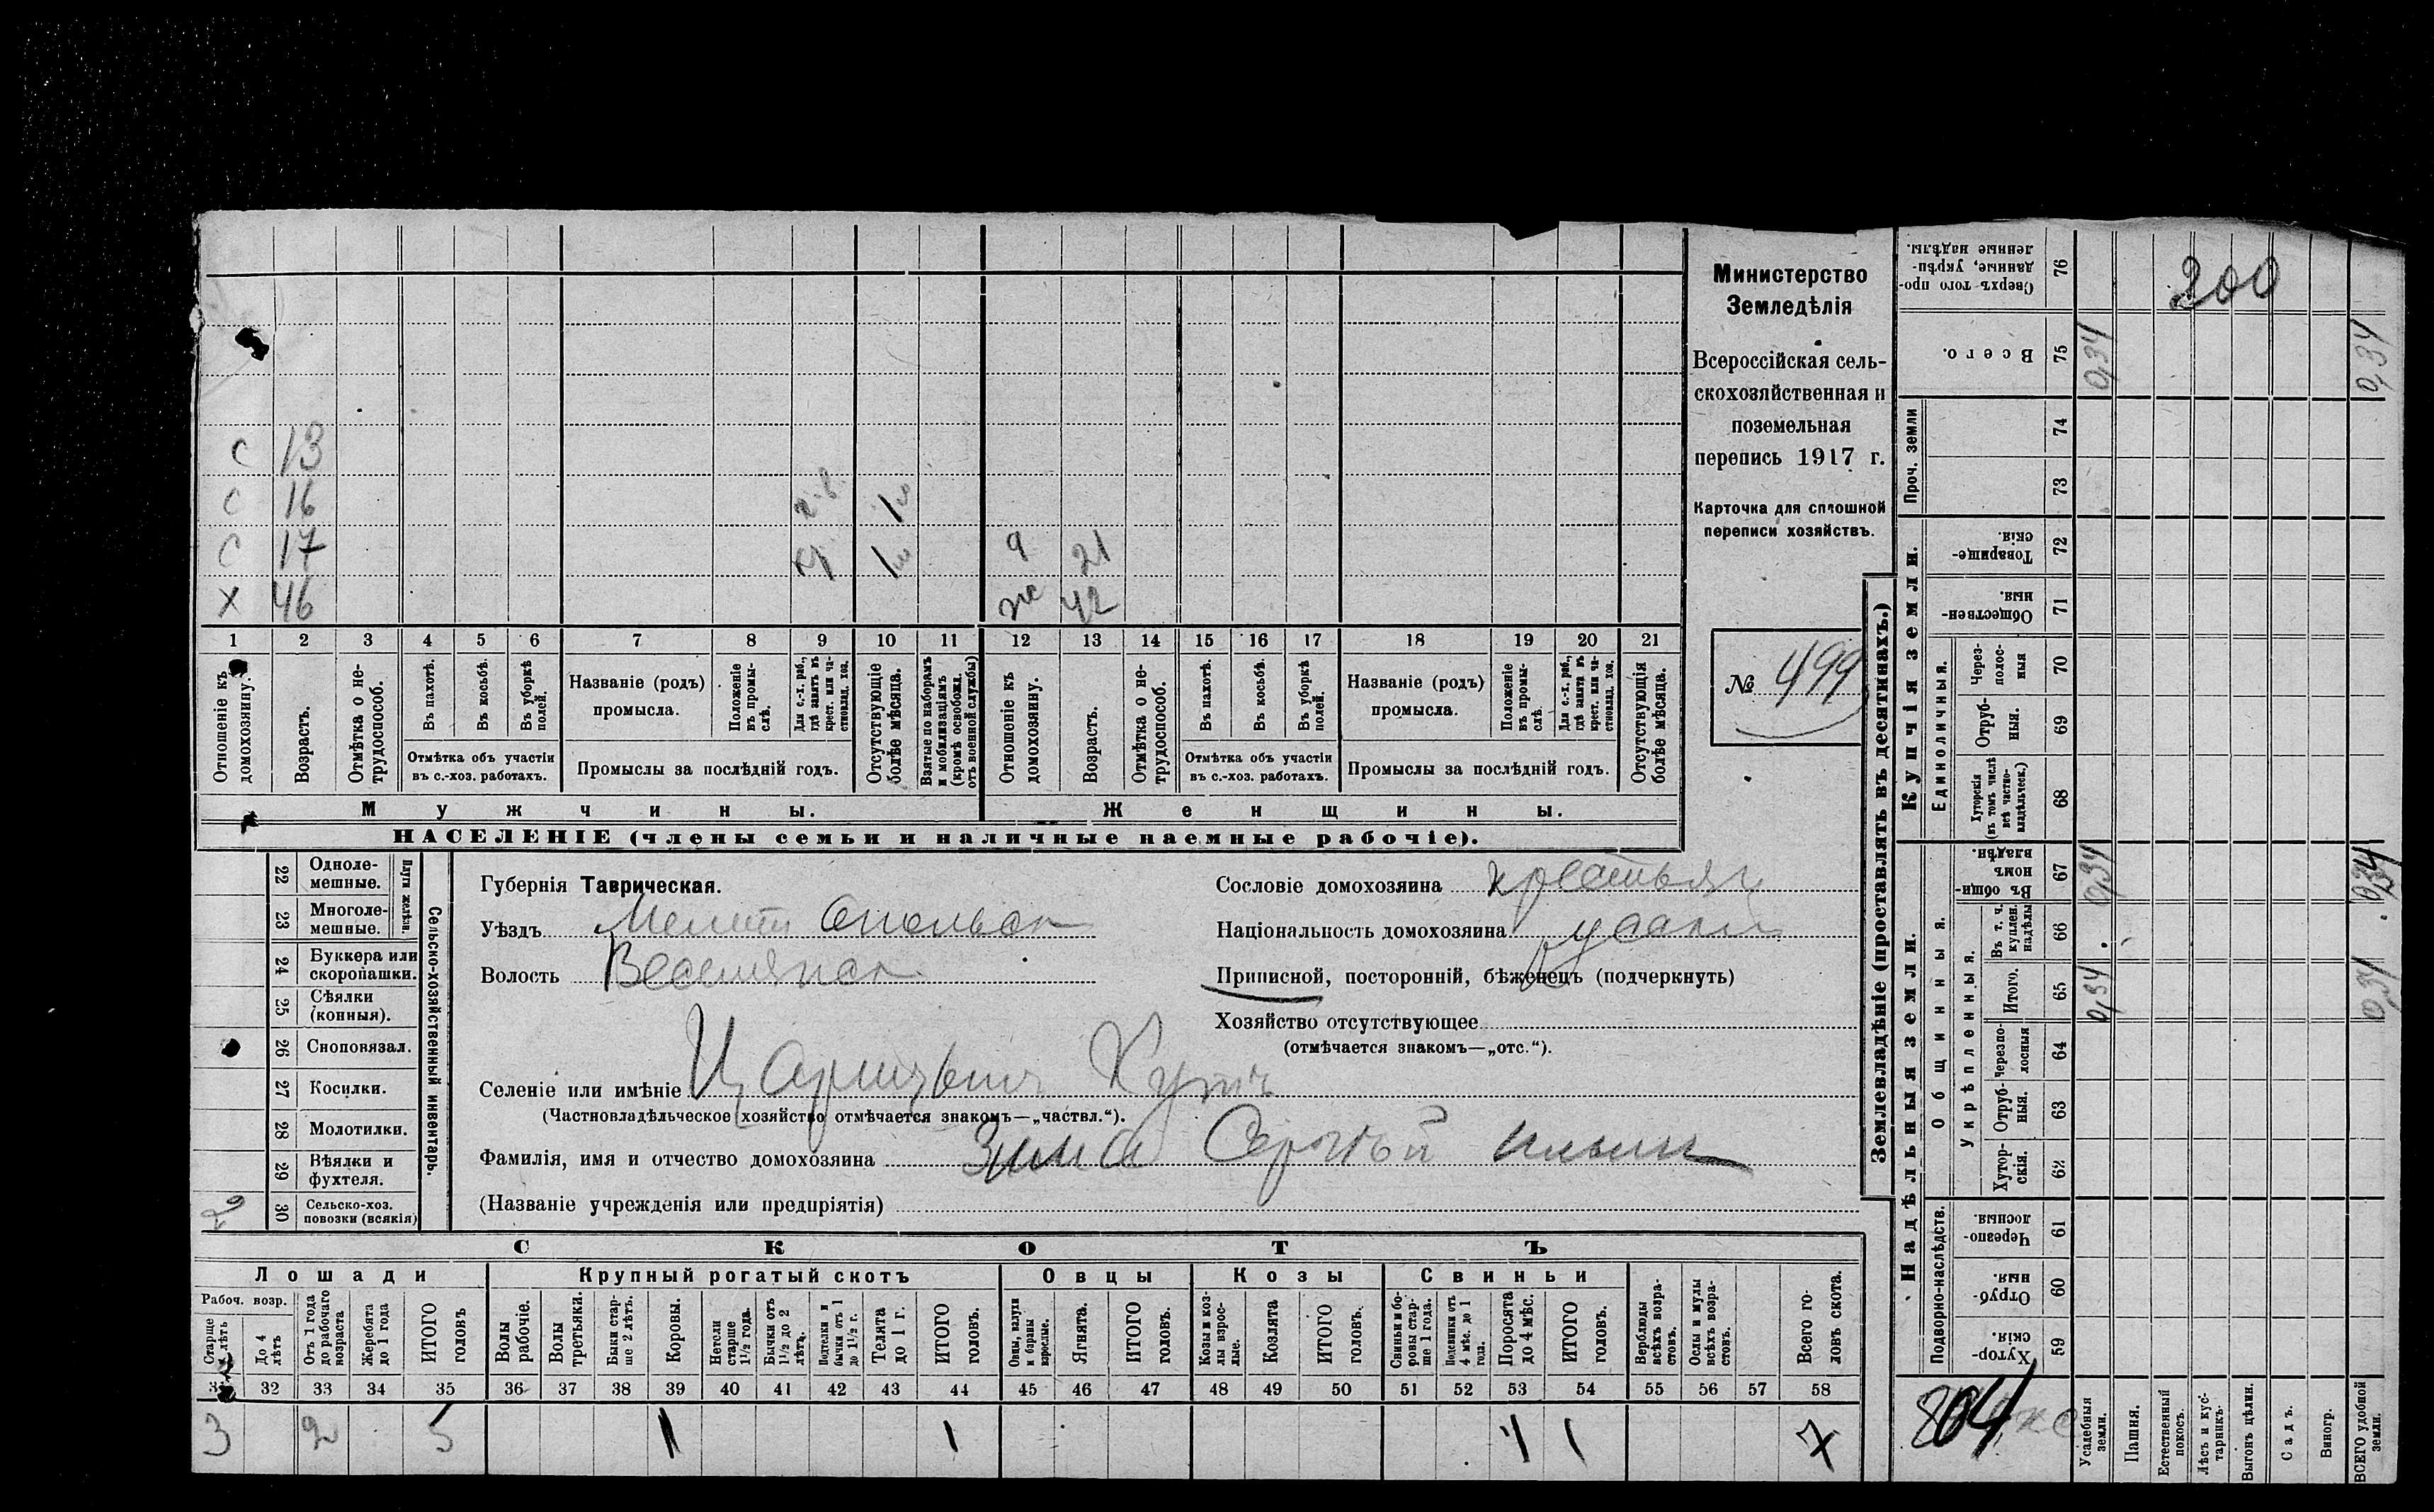 Министерство
Земледѣлія
Всероссійская сель-
скохозяйственная и
поземельная
перепись 1917 г.
Карточка для сплошной
переписи хозяйствъ.
№ 499
С 13
С 16
С 17 21
Х 46 ж 42
1 2 3 4 5 6 7 8 9 10 11 12 13 14 15 16 17 18 19 20 21
Отношеніе къ домохозяину.
Возрастъ.
Отмѣтка о не-трудоспособ.
Въ пахотѣ.
Въ косьбѣ.
Въ уборкѣ полей.
Отмѣтка объ участіи
въ с.-хоз. работахъ.
Названіе (родъ)
промысла.
Положеніе въ промы-слѣ.
Для с.-х. раб., гдѣ занятъ въ крест. или ча-стновлад. хоз.
Промыслы за послѣдній годъ.
Отсутствующіе болѣе мѣсяца.
Взятые по наборамъ и мобилизаціямъ (кромѣ освобожд. отъ военной службы)
Отношеніе къ домохозяину.
Возрастъ.
Отмѣтка о не-трудоспособ.
Въ пахотѣ.
Въ косьбѣ.
Въ уборкѣ полей.
Отмѣтка объ участіи
въ с.-хоз. работахъ.
Названіе (родъ)
промысла.
Положеніе въ промы-слѣ.
Для с.-х. раб., гдѣ занята въ крест. или ча-стновлад. хоз.
Промыслы за послѣдній годъ.
Отсутствующія болѣе мѣсяца.
Мужчины. Женщины.
НАСЕЛЕНІЕ (члены семьи и наличные наемные рабочіе).
Сельско-хозяйственный инвентарь.
Плуги желѣзн.
22 Одноле-мешные.
23 Многоле-мешные.
24 Буккера или скоропашки.
25 Сѣялки (конныя).
26 Сноповязал.
27 Косилки.
28 Молотилки.
29 Вѣялки и фухтеля.
30 Сельско-хоз. повозки (всякія)
2
Губернія Таврическая.
Уѣздъ Мелитопольск
Волость Веселянск
Сословіе домохозяина крестьян
Національность домохозяина русский
Приписной, посторонній, бѣженецъ (подчеркнуть)
Хозяйство отсутствующее
(отмѣчается знакомъ—„отс.“).
Селеніе или имѣніе Царицынъ Кутъ
(Частновладѣльческое хозяйство отмѣчается знакомъ—„частвл.“).
Фамилія, имя и отчество домохозяина Зима Сергѣй Ильич
(Названіе учрежденія или предпріятія)
СКОТЪ
Лошади Крупный рогатый скотъ Овцы Козы Свиньи
Рабоч. возр.
Старше 4 лѣтъ
До 4 лѣтъ
Отъ 1 года до рабочаго возраста
Жеребята до 1 года
ИТОГО головъ
Волы рабочіе.
Волы третьяки.
Быки стар-ше 2 лѣтъ.
Коровы.
Нетели старше 1½ года.
Бычки отъ 1½ до 2 лѣтъ.
Подтелки и бычки отъ 1 до 1½ г.
Телята до 1 г.
ИТОГО головъ.
Овцы, валухи и бараны взрослые.
Ягнята.
ИТОГО головъ.
Козы и коз-лы взрос-лые.
Козлята
ИТОГО головъ.
Свиньи и бо-ровы стар-ше 1 года.
Подсвинки отъ 4 мѣс. до 1 года.
Поросята до 4 мѣс.
ИТОГО головъ.
Верблюды всѣхъ возра-стовъ.
Ослы и мулы всѣхъ возра-стовъ.
Всего го-ловъ скота.
31 32 33 34 35 36 37 38 39 40 41 42 43 44 45 46 47 48 49 50 51 52 53 54 55 56 57 58
3 2 5 1 1 1 1 7
Землевладѣніе (проставлять въ десятинахъ.)
Надѣльныя земли. Купчія земли.
Подворно-наслѣдств.
Общинныя.
Укрѣпленныя.
Единоличныя.
Проч. земли
Хутор-скія. 59
Отруб-ныя. 60
Черезпо-лосныя. 61
Хутор-скія. 62
Отруб-ныя. 63
Черезпо-лосныя 64
Итого. 65
Въ т. ч. куплен. надѣлы 66
Въ общин-номъ владѣн. 67
Хуторскія (въ томъ числѣ всѣ частно-владѣльческ.) 68
Отруб-ныя. 69
Через-полос-ныя 70
Обществен-ныя. 71
Товарище-скія. 72
73
74
Всего. 75
Сверхъ того про-данные, укрѣп-ленные надѣлы. 76
200
0,34 0,34
0,34 0,34
0,34 0,34
804
Усадебныя земли.
Пашня.
Естественный покосъ.
Лѣсъ и кус-тарникъ.
Выгонъ цѣлин.
Садъ.
Виногр.
ВСЕГО удобной земли.